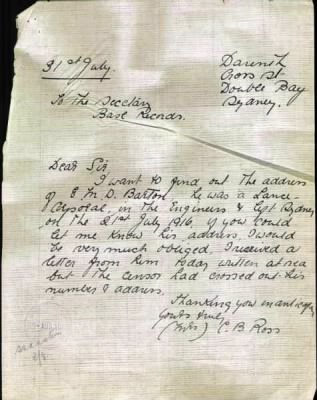 31st July.
Darenth
Cross St
Double Bay
Sydney.
To The Secetary
Base Records.
Dear Sir,
I want to find out the address
of E. M. D. Barton he was a Lance-
Corporal, in the Engineers & left Sydney
on the 21st July 1916, if you could
let me know his address, I would
be very much obliged. I received a
letter from him today written at sea
but the censor had crossed out his
number & address.
Thanking you in anticipation
yours truly
(Mrs) C. B. Ross